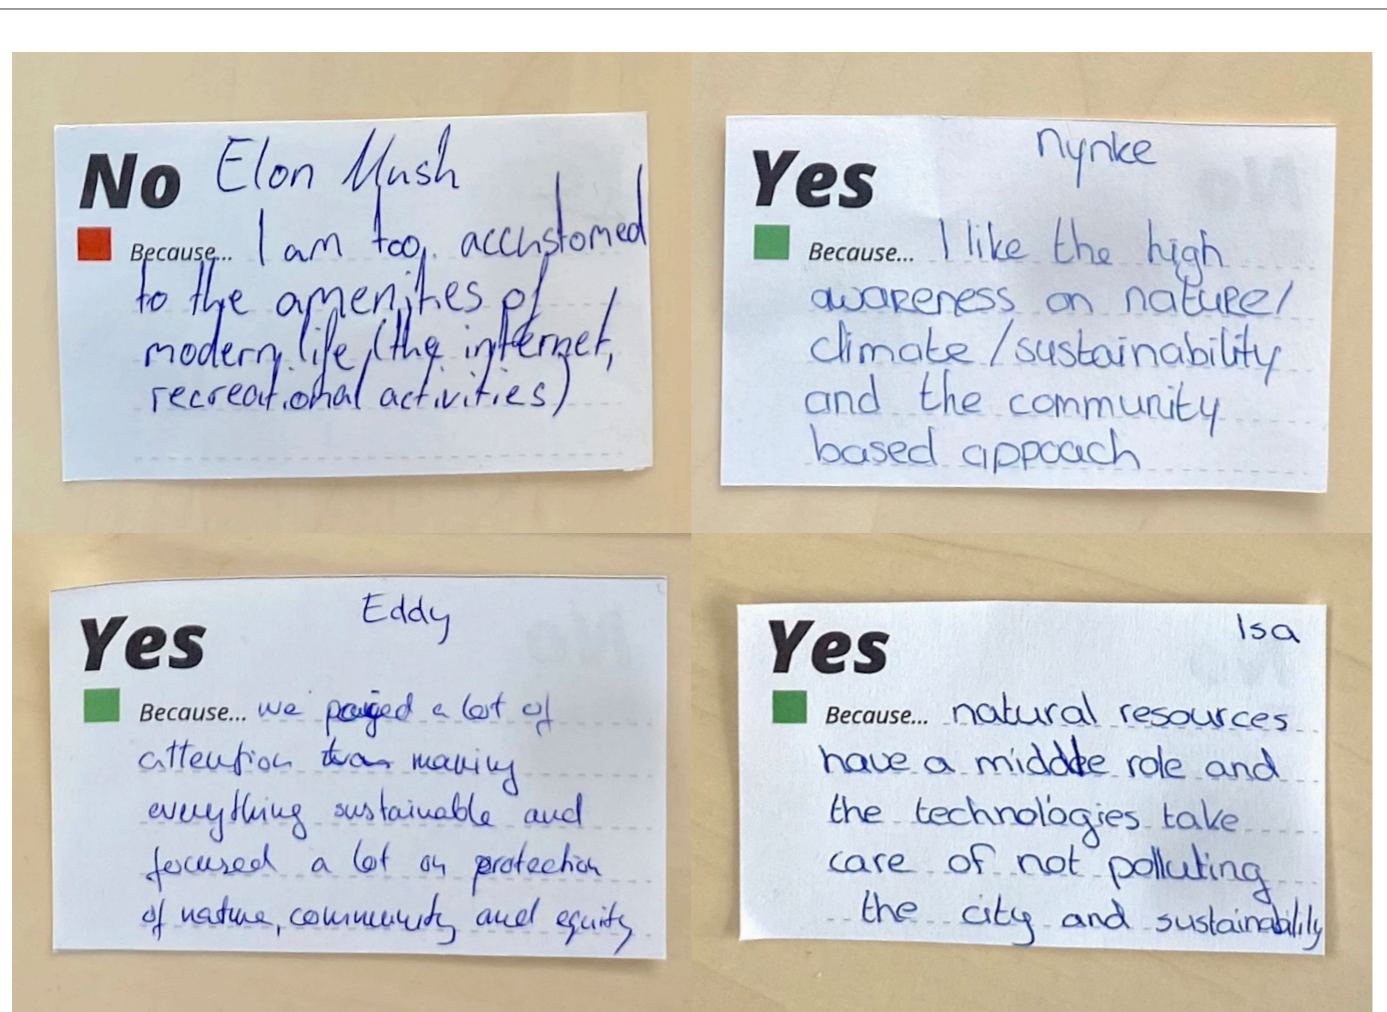 No Elon Mush
Because... I am too accustomed
to the amenities of
modern life, (the internet,
recreational activities)
Yes Nynke
Because... I like the high
awareness on nature/
climate/sustainability
and the community
based appoach
Yes Eddy
Because... we payed a lot of
attention making
everything sustainable and
focused a lot on protection
of nature, community and equity
Yes Isa
Because... natural resources
have a middle role and
the technologies take
care of not polluting
the city and sustainability